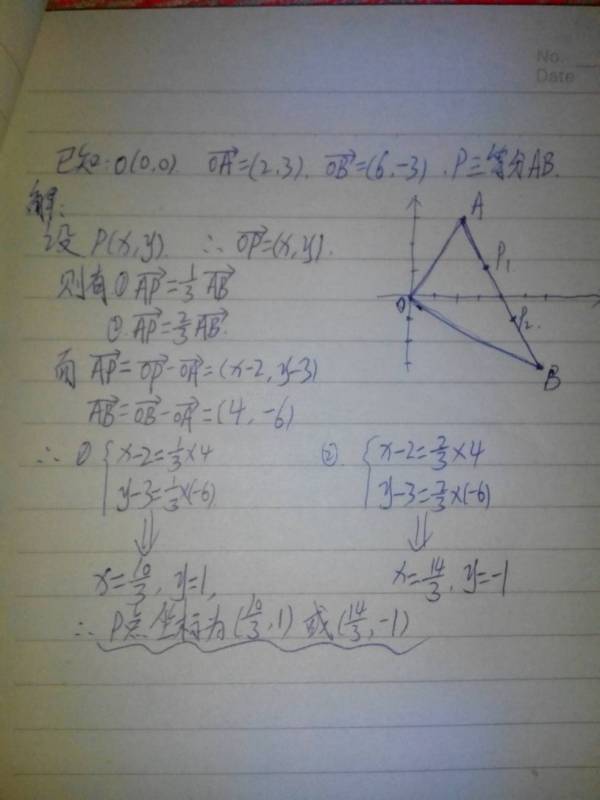 No.
Date
已知:O(0,0) OA→=(2,3), OB→=(6,-3), P三等分AB.
解:
设 P(x,y) ∴ OP→=(x,y).
则有① AP→=1/3 AB→
②. AP→=2/3 AB→.
而 AP→=OP→-OA→=(x-2, y-3)
AB→=OB→-OA→=(4, -6)
∴ ① { x-2=1/3×4 ②. { x-2=2/3×4
y-3=1/3×(-6) y-3=2/3×(-6)
⇓ ⇓
x=10/3, y=1, x=14/3, y=-1
∴ P点坐标为(10/3,1) 或(14/3,-1)
A
P₁
O
P₂.
B